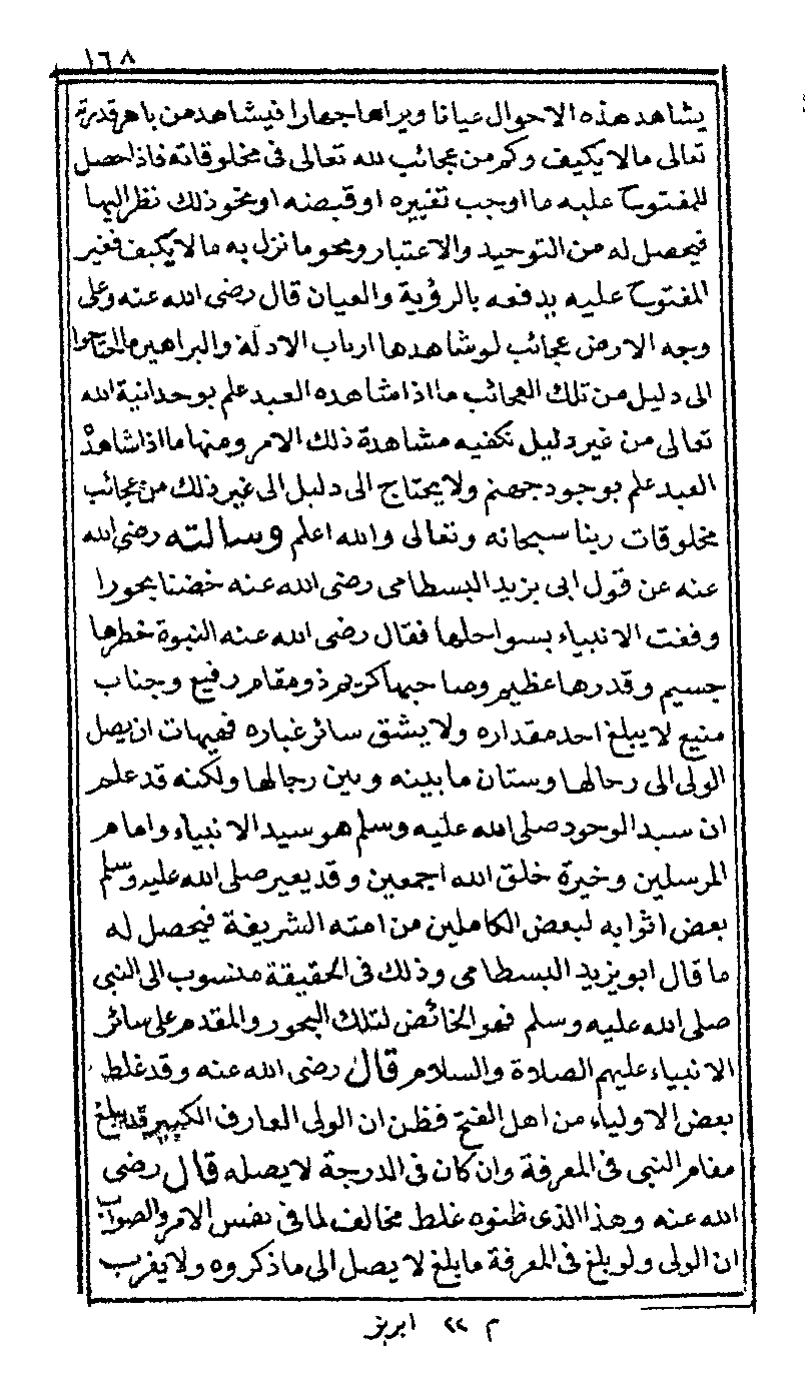 ١٦٨
يشاهد هذه الاحوال عيانا ويراها جهارا فيشاهد من باهر قدرته
تعالى مالا يكيف وكم من عجائب لله تعالى فى مخلوقاته فاذا حصل
للمفتوح عليه ما اوجب تغييره او قبضه او نحو ذلك نظر اليها
فيحصل له من التوحيد والاعتبار ومحو ما نزل به مالا يكيف فغير
المفتوح عليه يدفعه بالرؤية والعيان قال رضى الله عنه وعلى
وجه الارض عجائب لو شاهدها ارباب الادلة والبراهين ما احتاجوا
الى دليل من تلك العجائب ما اذا شاهده العبد علم بوحدانية الله
تعالى من غير دليل تكفيه مشاهدة ذلك الامر ومنها ما اذا شاهده
العبد علم بوجود جهنم ولا يحتاج الى دليل الى غير ذلك من عجائب
مخلوقات ربنا سبحانه وتعالى والله اعلم وسالته رضى الله
عنه عن قول ابى يزيد البسطامى رضى الله عنه خضنا بحورا
وقفت الانبياء بسواحلها فقال رضى الله عنه النبوة خطرها
جسيم وقدرها عظيم وصاحبها كريم ذو مقام رفيع وجناب
منيع لا يبلغ احد مقداره ولا يشق سائر غباره فهيهات ان يصل
الولى الى رحالها وستان ما بينه وبين رجالها ولكنه قد علم
ان سيد الوجود صلى الله عليه وسلم هو سيد الانبياء وامام
المرسلين وخيرة خلق الله اجمعين وقد يعير صلى الله عليه وسلم
بعض اثوابه لبعض الكاملين من امته الشريفة فيحصل له
ما قال ابو يزيد البسطامى وذلك فى الحقيقة منسوب الى النبى
صلى الله عليه وسلم فهو الخائض لتلك البحور والمقدم على سائر
الانبياء عليهم الصلاة والسلام قال رضى الله عنه وقد غلط
بعض الاولياء من اهل الفتح فظن ان الولى العارف الكبير قد يبلغ
مقام النبى فى المعرفة وان كان فى الدرجة لا يصله قال رضى
الله عنه وهذا الذى ظنوه غلط مخالف لما فى نفس الامر والصواب
ان الولى ولو بلغ فى المعرفة ما بلغ لا يصل الى ما ذكروه ولا يقرب
م ٢٢ ابريز